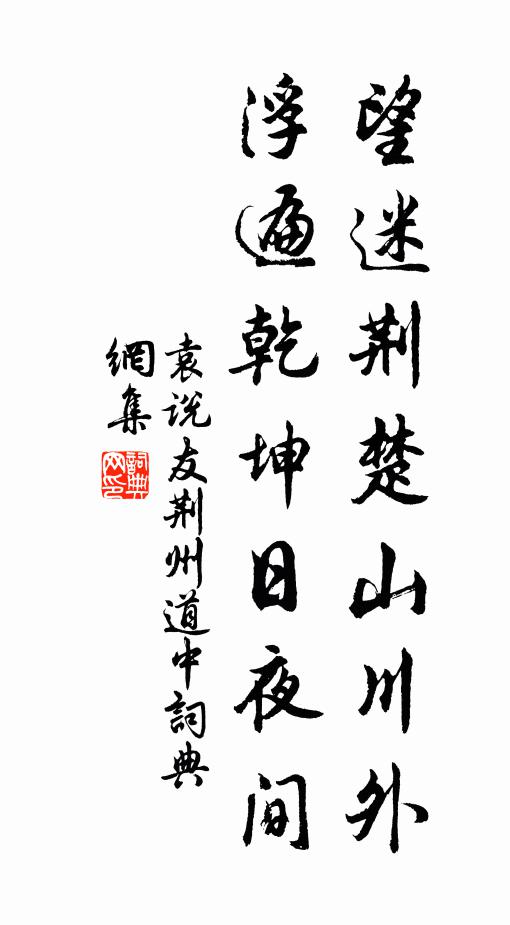 望迷荆楚山川外
浮遍乾坤日夜间
袁说友荆州道中詞典
網集
詞典網印